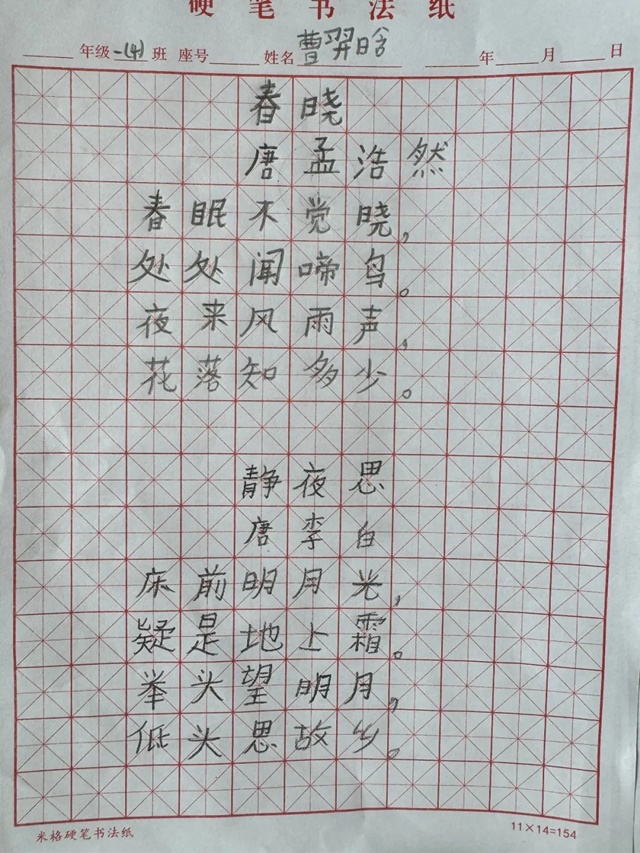 硬笔书法纸
年级一(4)班 座号 姓名 曹羿晗 年 月 日
春晓
唐 孟浩然
春眠不觉晓,
处处闻啼鸟。
夜来风雨声,
花落知多少。
静夜思
唐 李白
床前明月光,
疑是地上霜。
举头望明月,
低头思故乡。
米格硬笔书法纸
11×14=154